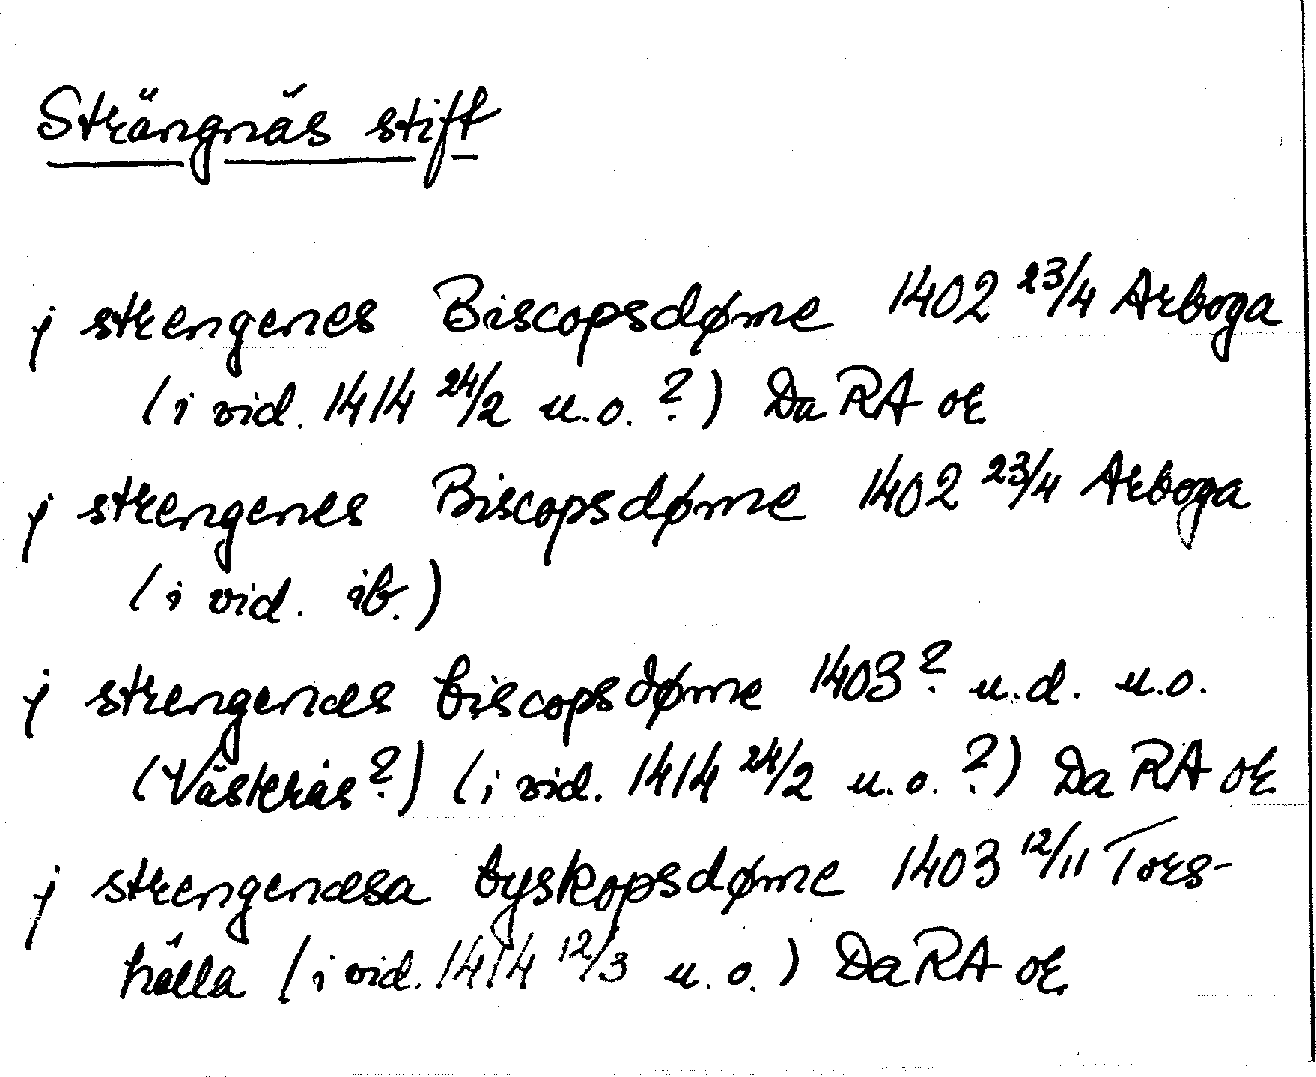 Strängnäs stift
j strengenes Biscopsdøme 1402 23/4 Arboga
(i vid. 1414 24/2 u.o.?) Da RA or
j strengenes Biscopsdøme 1402 23/4 Arboga
(i vid. ib.)
j strengenæs biscopsdøme 1403? u.d. u.o.
(Västerås?) (i vid. 1414 24/2 u.o.?) Da RA or
j strengenæsa byskopsdøme 1403 12/11 Tors-
hälla (i vid. 1414 12/3 u.o.) Da RA or